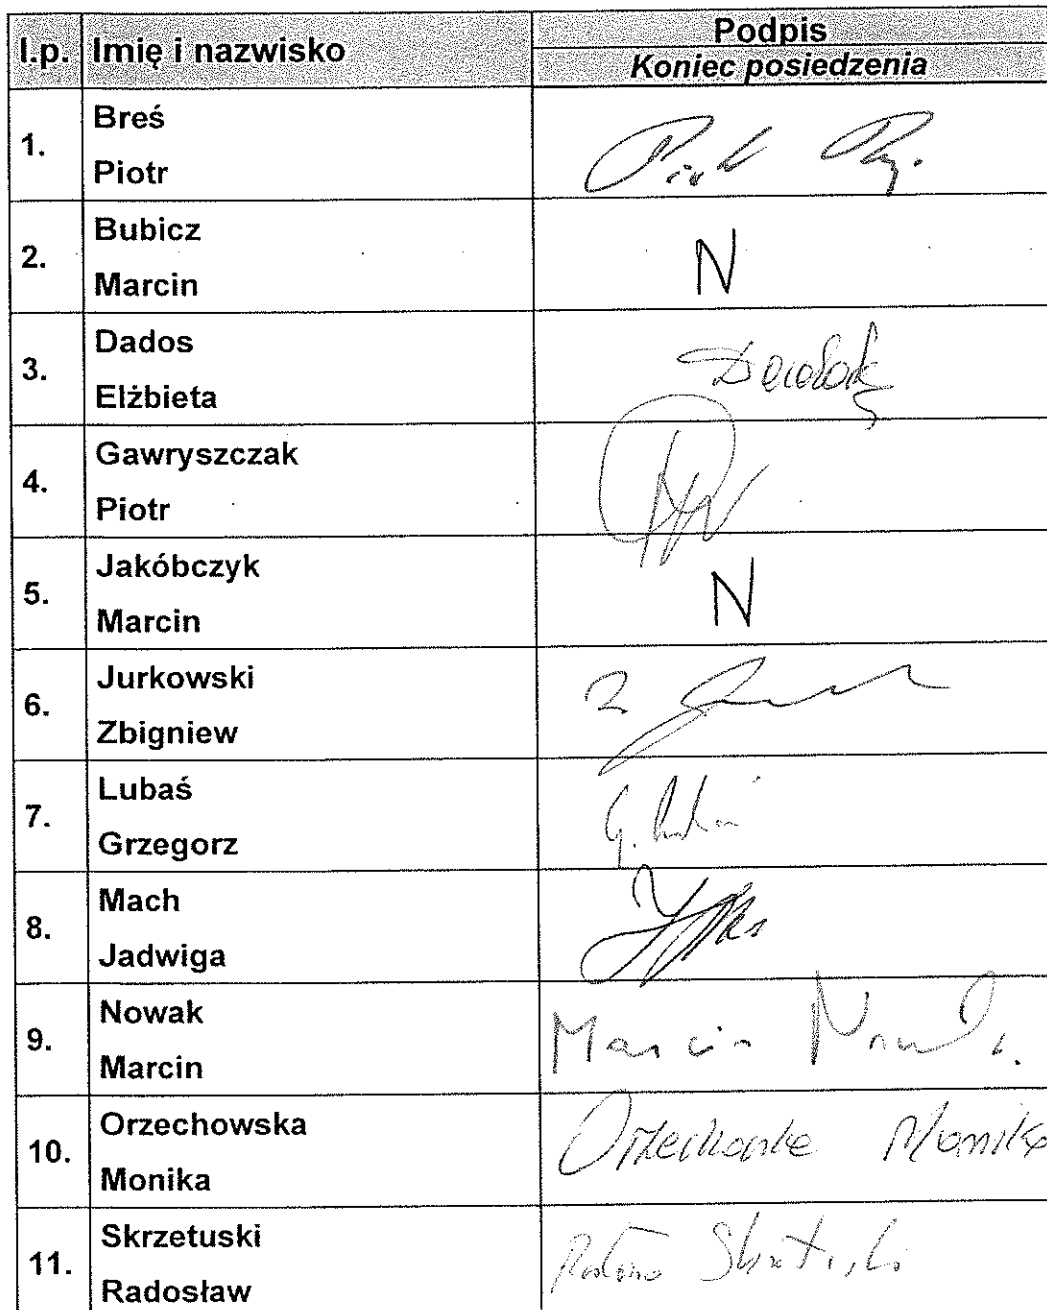 l.p. Imię i nazwisko Podpis
Koniec posiedzenia
1. Breś
Piotr
2. Bubicz
Marcin N
3. Dados
Elżbieta
4. Gawryszczak
Piotr
5. Jakóbczyk
Marcin N
6. Jurkowski
Zbigniew
7. Lubaś
Grzegorz
8. Mach
Jadwiga
9. Nowak
Marcin Marcin Nowak
10. Orzechowska
Monika Monika
11. Skrzetuski
Radosław